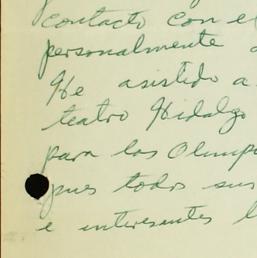 contacto con el
personalmente
He asistido a
teatro Hidalgo
para las Olimpi
pues todos sus
e interesantes